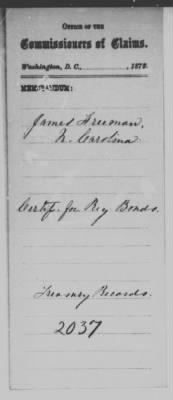 OFFICE OF THE
Commissioners of Claims.
Washington, D. C., , 1873.
MEMORANDUM:
James Freeman,
N. Carolina
Certif. for Reg Bonds.
Treasury Records.
2037